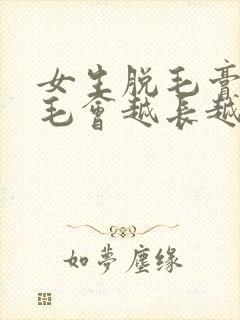 女生脱毛膏
毛會越長越
如夢塵缘